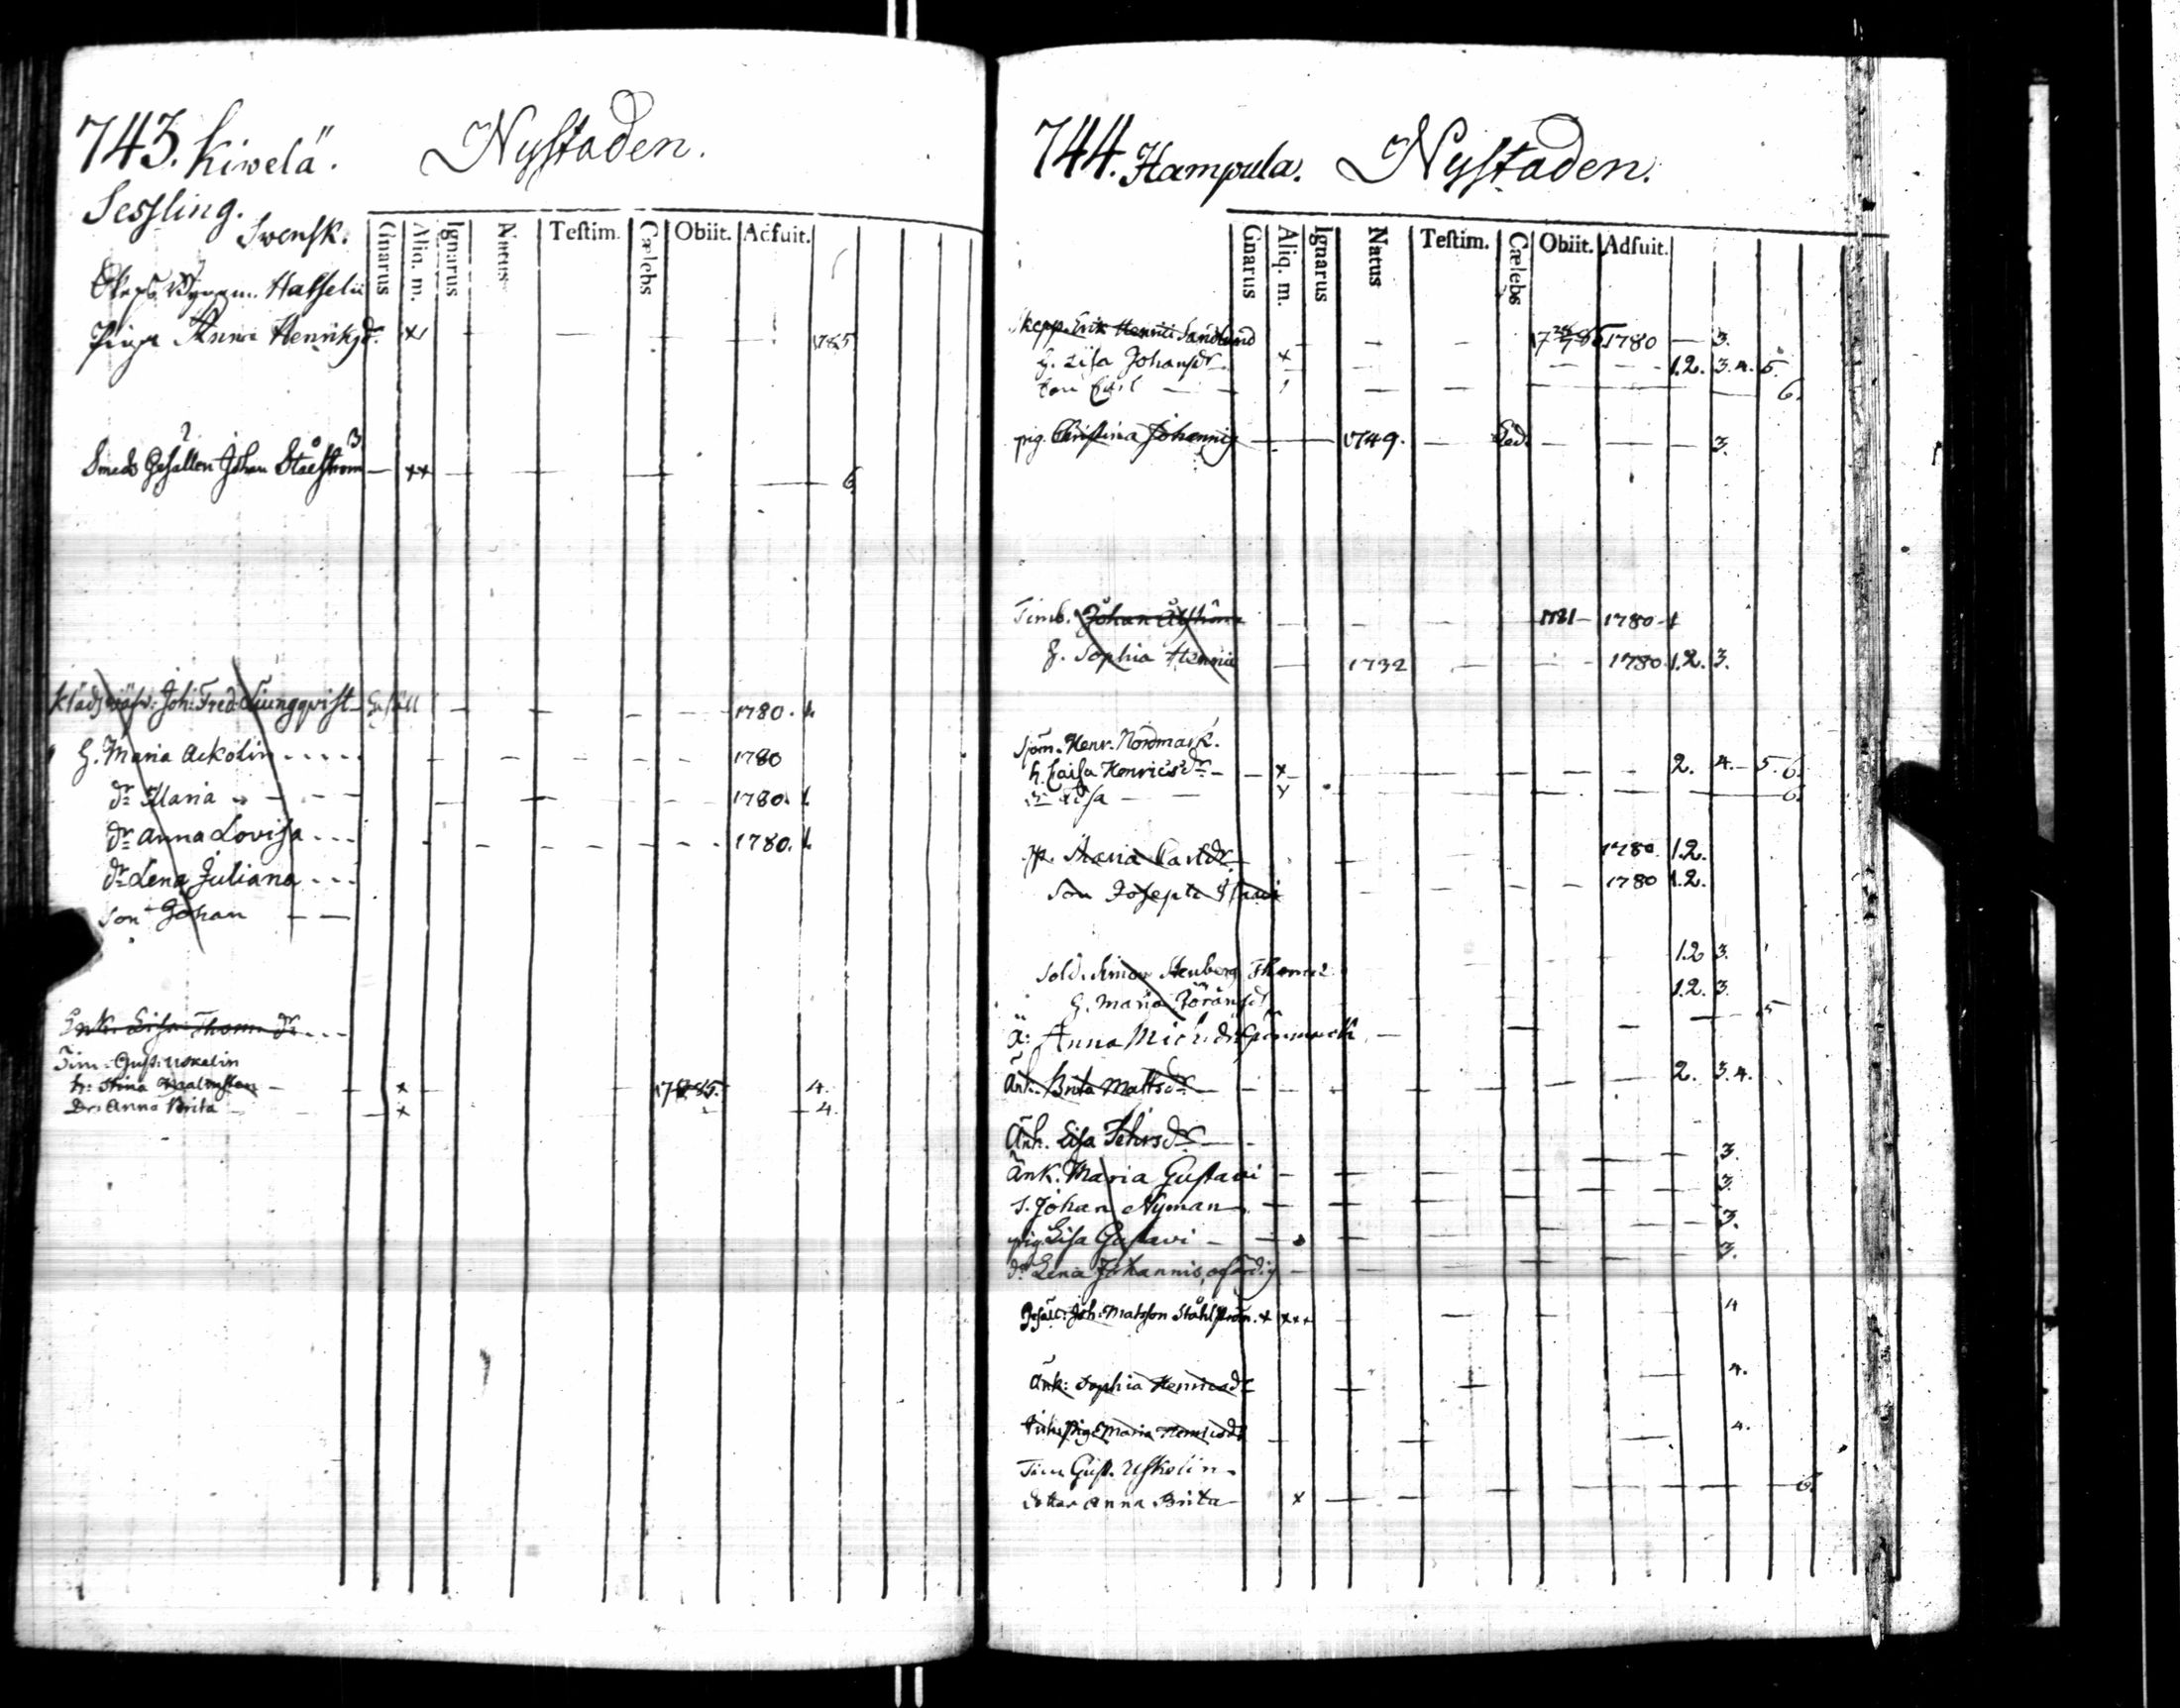 743. Kiwelä. Nystaden.
Sessling.
Swensk.
Gnarus Aliq. m. Ignarus Natus Testim. Cælebs Obiit. Adfuit.
Piga Anna Henriksdr. x 1785
Smeds Gesällen Johan Stålström xx 6.
Joh: Fred: Liungqvist Gesäll 1780. 1.
H. Maria Ackolin 1780
dr Maria 1780. 1.
dr Anna Lovisa 1780. 1.
dr Lena Juliana
son Johan
Enk. Lisa Thom. dr
Tim. Gust. Uskelin
h: Stina x 4.
Dr: Anna Brita x 4.
744. Hampula. Nystaden.
Gnarus Aliq. m. Ignarus Natus Testim. Cælebs Obiit. Adfuit.
Skepp. Erik Henrici Sandlund 1780 3.
H. Lisa Johansdr x 1.2. 3. 4. 5.
6.
pig. Christina Johannis 1749. 3.
Timb. Johan 1781 1780 1
H. Sophia Henrici 1732 1780 1.2. 3.
Sjöm. Henr. Nordmark.
h. Caisa Henricsdr x 2. 4. 5. 6.
dr Lisa 6.
Maria Carlsdr 1780 1.2.
Son Joseph 1780 1.2.
Sold. Simon Stenberg 1.2 3.
H. Maria Göransdr 1.2. 3.
Anna Mich. dr 5
Änk. Brita Mattsdr 2. 3. 4.
Änk. Lisa
Änk. Maria Gustavi 3.
s. Johan Nyman 3.
pig. Lisa Gustavi 3.
dr Lena Johannis, ofärdig 3.
Gesäll: Joh: Matsson Stålström. x xxx 4
Änk: Sophia Henricsdr 4.
Maria Henricsdr 4.
Tim Gust. Uskolin
dotter Anna Brita x 6.